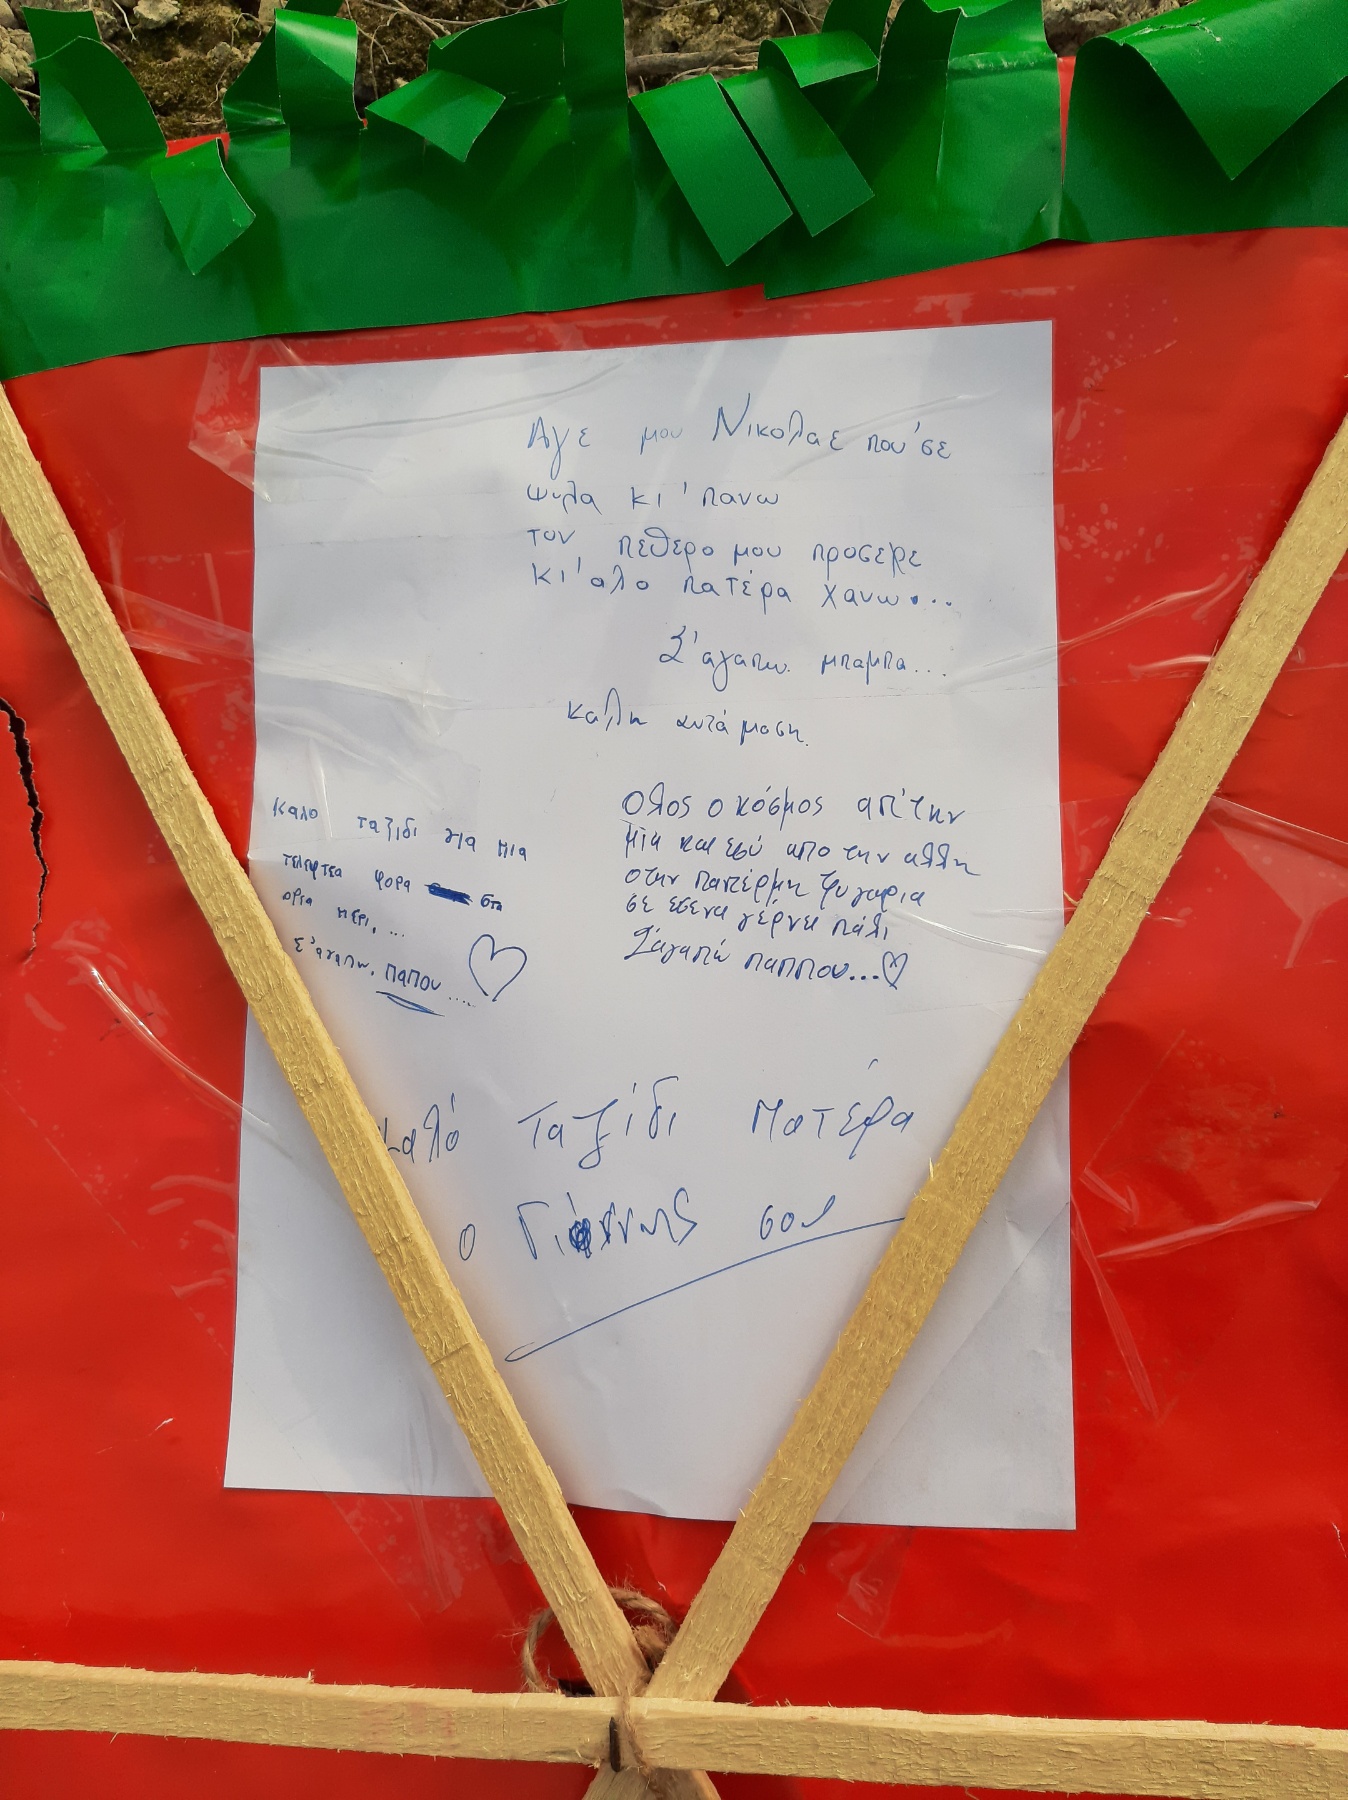 Αγε μου Νικολαε που'σε
ψυλα κι 'πανω
τον πεθερο μου προσεχε
κι'αλο πατέρα χανω...
Σ'αγαπω. μπαμπα...
καλη αντάμοση.
Καλο ταξιδι για μια
τελευτεα φορα στα
ορια μερι. ...
Σ'αγαπω. παπου ....
Ολος ο κόσμος απ'την
μια και εσύ απο την αλλη
στην παντέρμη ζυγαρια
σε εσενα γέρνει πάλι
Σ'αγαπώ παππου...
Καλό Ταξίδι Πατέρα
ο Γιάννης σου